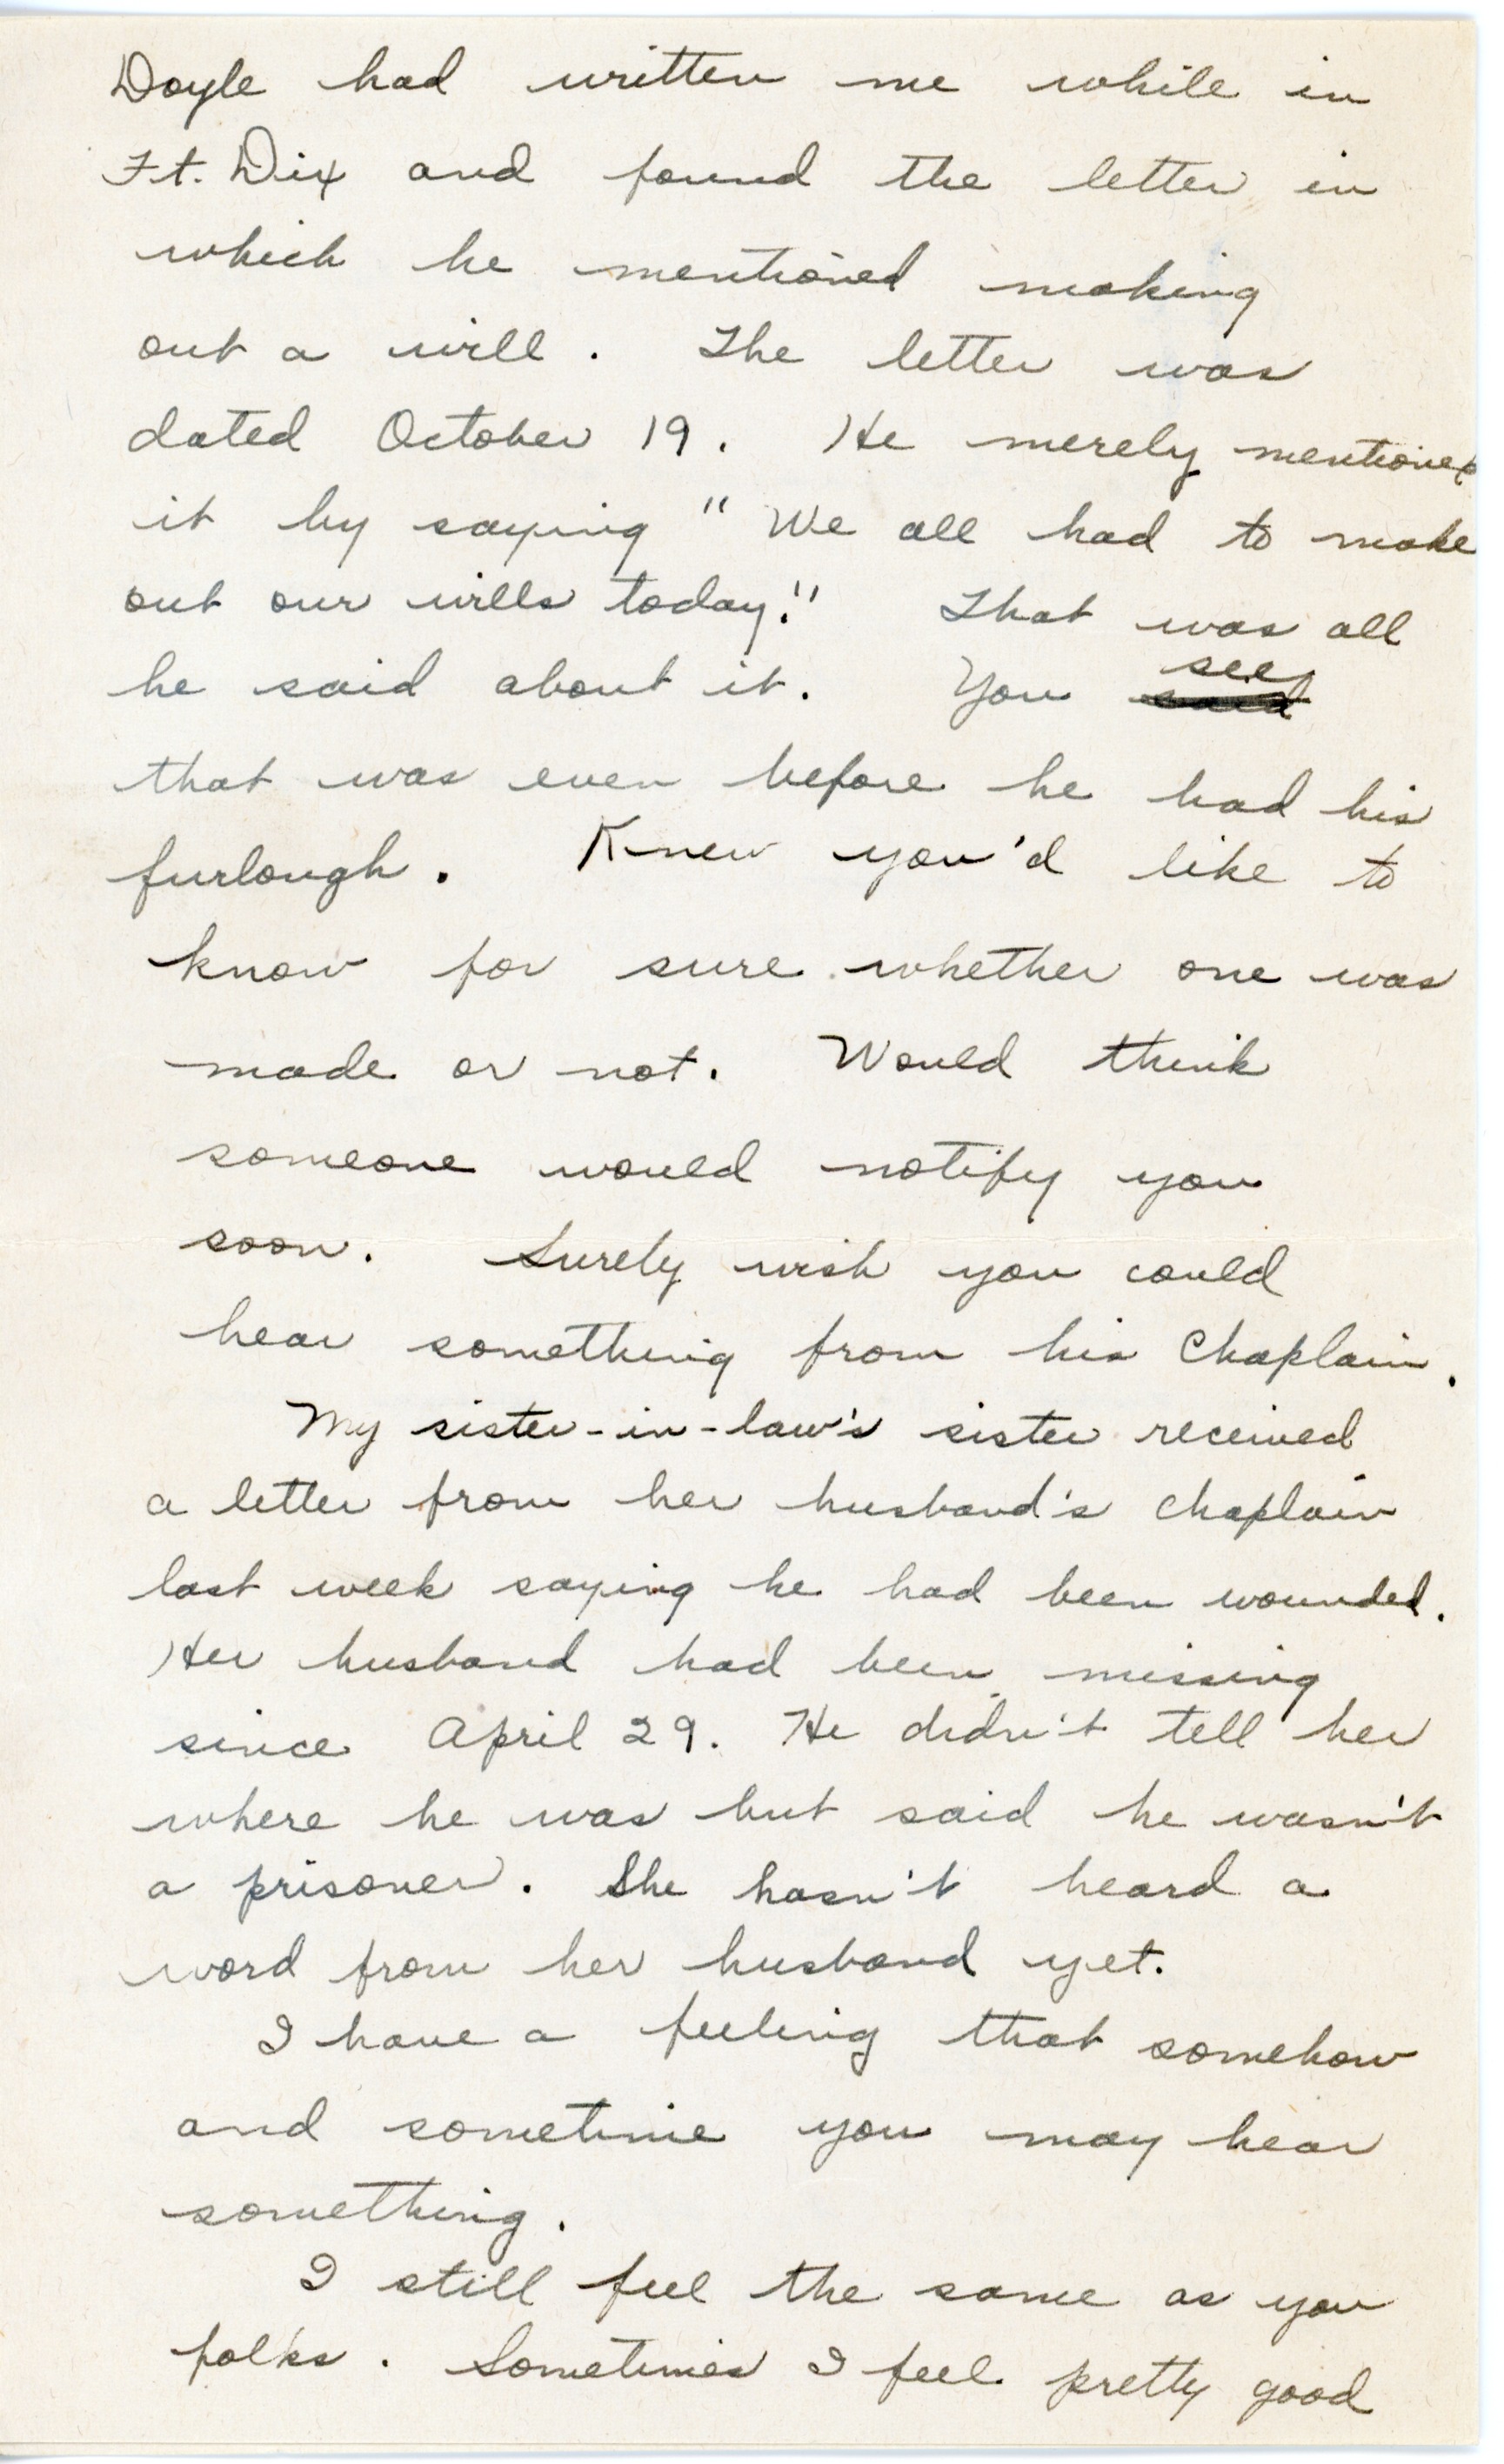 Doyle had written me while in
Ft. Dix and found the letter in
which he mentioned making
out a will. The letter was
dated October 19. He merely mentioned
it by saying "We all had to make
out our wills today!" That was all
he said about it. You see, said
that was even before he had his
furlough. Knew you'd like to
know for sure whether one was
made or not. Would think
someone would notify you
soon. Surely wish you could
hear something from his Chaplain.
My sister-in-law's sister received
a letter from her husband's chaplain
last week saying he had been wounded.
Her husband had been missing
since April 29. He didn't tell her
where he was but said he wasn't
a prisoner. She hasn't heard a
word from her husband yet.
I have a feeling that somehow
and sometime you may hear
something.
I still feel the same as you
folks. Sometimes I feel pretty good